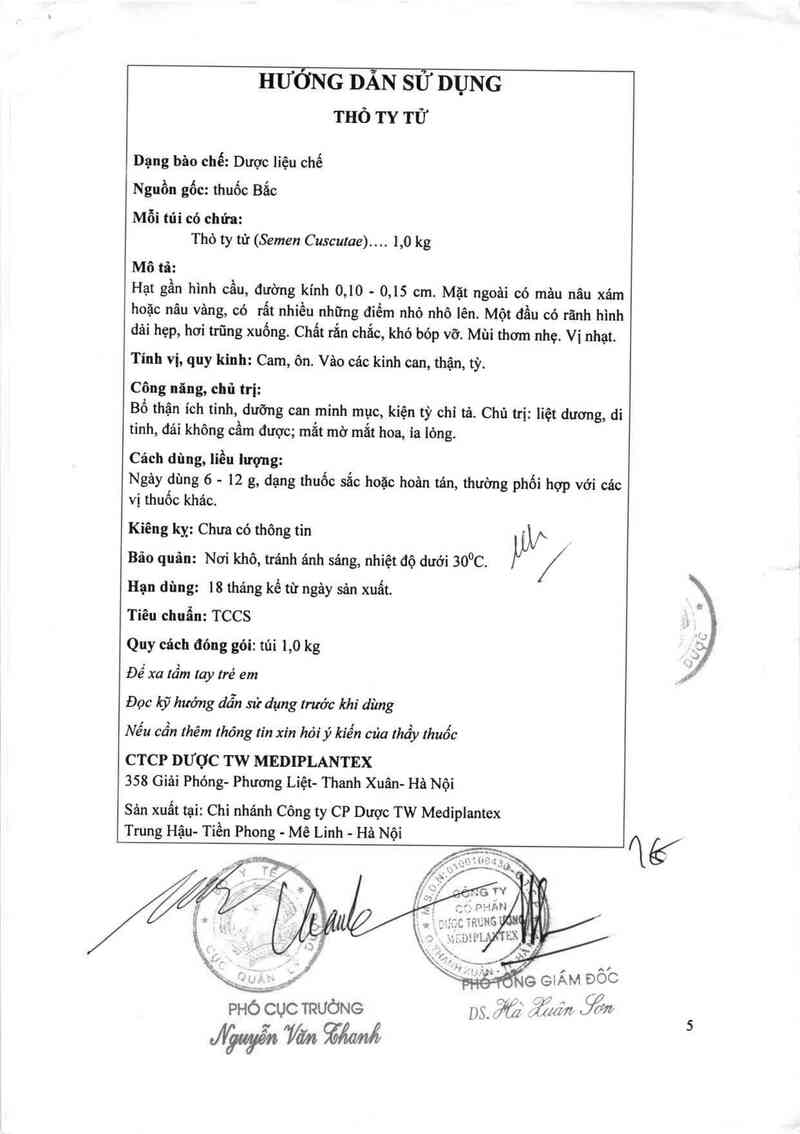 HƯỚNG DẪN SỬ DỤNG
THỎ TY TỬ
Dạng bào chế: Dược liệu chế
Nguồn gốc: thuốc Bắc
Mỗi túi có chứa:
Thỏ ty tử (Semen Cuscutae).... 1,0 kg
Mô tả:
Hạt gần hình cầu, đường kính 0,10 - 0,15 cm. Mặt ngoài có màu nâu xám
hoặc nâu vàng, có rất nhiều những điểm nhỏ nhô lên. Một đầu có rãnh hình
dài hẹp, hơi trũng xuống. Chất rắn chắc, khó bóp vỡ. Mùi thơm nhẹ. Vị nhạt.
Tính vị, quy kinh: Cam, ôn. Vào các kinh can, thận, tỳ.
Công năng, chủ trị:
Bổ thận ích tinh, dưỡng can minh mục, kiện tỳ chỉ tả. Chủ trị: liệt dương, di
tinh, đái không cầm được; mắt mờ mắt hoa, ỉa lỏng.
Cách dùng, liều lượng:
Ngày dùng 6 - 12 g, dạng thuốc sắc hoặc hoàn tán, thường phối hợp với các
vị thuốc khác.
Kiêng kỵ: Chưa có thông tin
Bảo quản: Nơi khô, tránh ánh sáng, nhiệt độ dưới 30⁰C.
Hạn dùng: 18 tháng kể từ ngày sản xuất.
Tiêu chuẩn: TCCS
Quy cách đóng gói: túi 1,0 kg
Để xa tầm tay trẻ em
Đọc kỹ hướng dẫn sử dụng trước khi dùng
Nếu cần thêm thông tin xin hỏi ý kiến của thầy thuốc
CTCP DƯỢC TW MEDIPLANTEX
358 Giải Phóng- Phương Liệt- Thanh Xuân- Hà Nội
Sản xuất tại: Chi nhánh Công ty CP Dược TW Mediplantex
Trung Hậu- Tiền Phong - Mê Linh - Hà Nội
DƯỢC
Y TẾ
CỤC QUẢN LÝ
CÔNG TY
CỔ PHẦN
DƯỢC TRUNG ƯƠNG
MEDIPLANTEX
PHÓ CỤC TRƯỞNG
Nguyễn Văn Thanh
PHÓ TỔNG GIÁM ĐỐC
DS. Hà Xuân Sơn
5